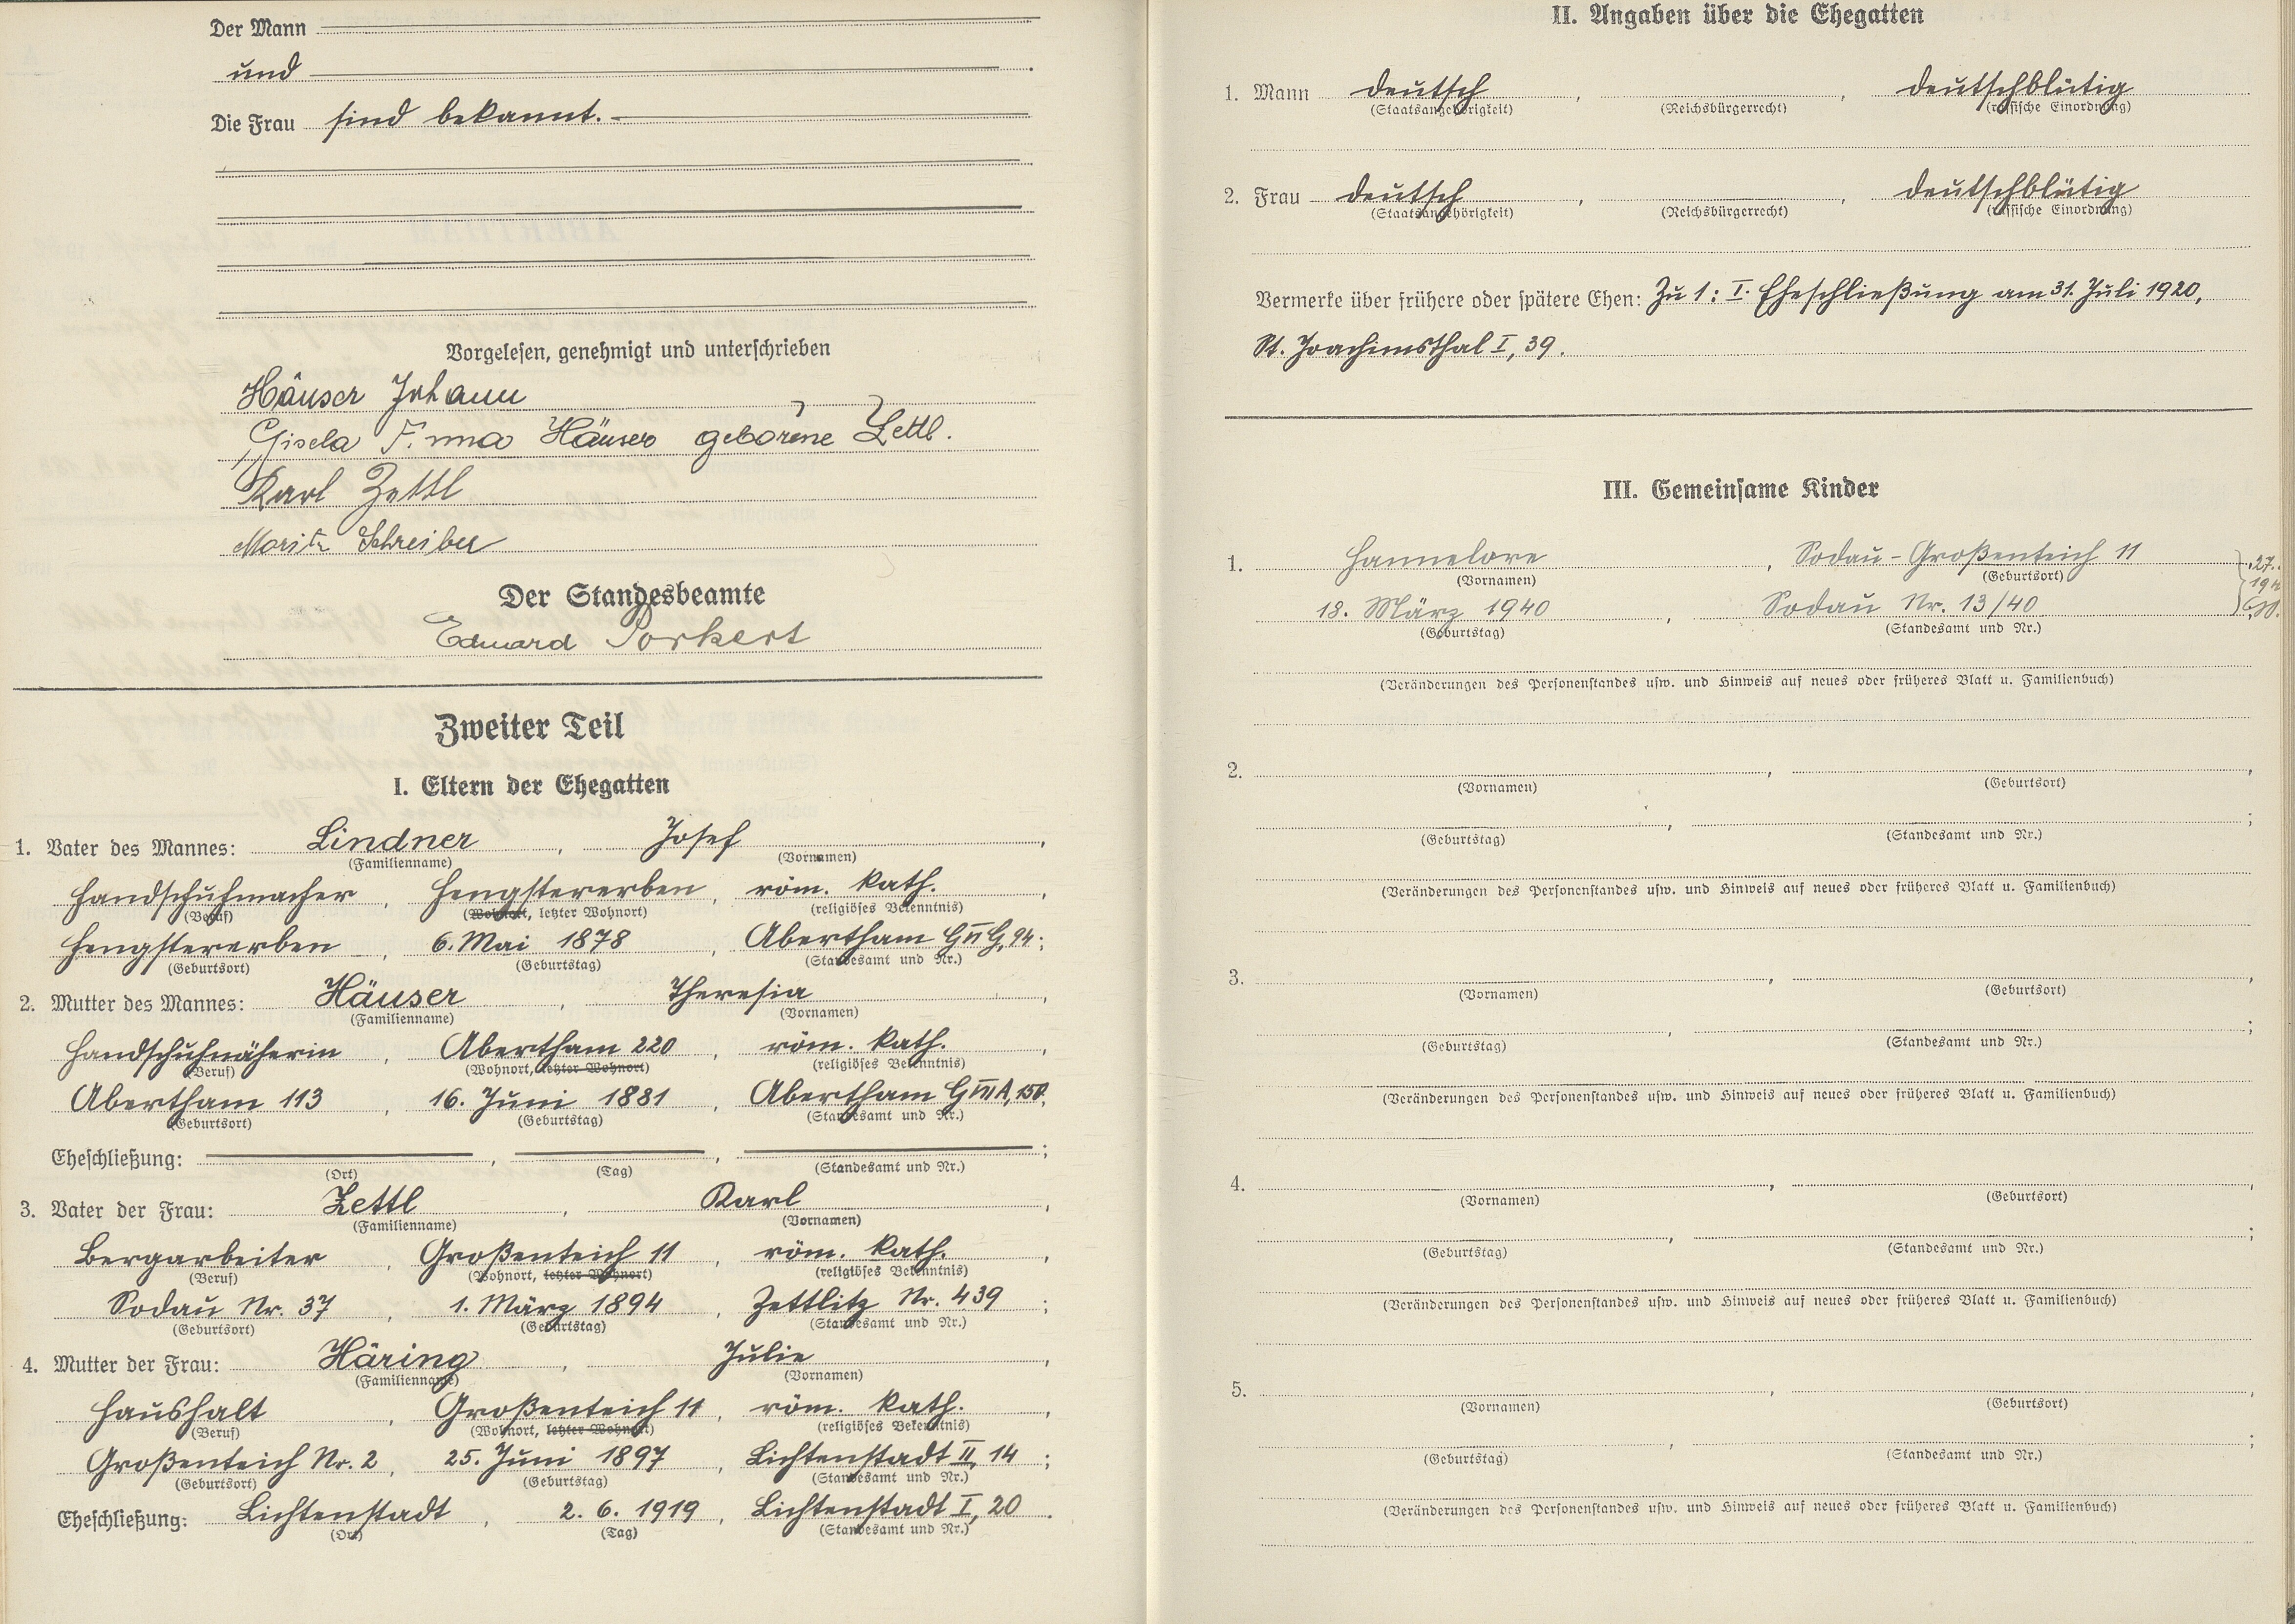 Der Mann
und
Die Frau sind bekannt.
Vorgelesen, genehmigt und unterschrieben
Häuser Johann
Gisela Anna Häuser geborene Zettl.
Karl Zettl
Moritz Schreiber
Der Standesbeamte
Eduard Porkert
Zweiter Teil
I. Eltern der Ehegatten
1. Vater des Mannes: Lindner, Josef,
(Familienname) (Vornamen)
Handschuhmacher, Hengstererben, röm. kath.,
(Beruf) (Wohnort, letzter Wohnort) (religiöses Bekenntnis)
Hengstererben, 6. Mai 1878, Abertham G VI G, 94;
(Geburtsort) (Geburtstag) (Standesamt und Nr.)
2. Mutter des Mannes: Häuser, Theresia,
(Familienname) (Vornamen)
Handschuhnäherin, Abertham 220, röm. kath.,
(Beruf) (Wohnort, letzter Wohnort) (religiöses Bekenntnis)
Abertham 113, 16. Juni 1881, Abertham G VII A, 150.
(Geburtsort) (Geburtstag) (Standesamt und Nr.)
Eheschließung: , , ;
(Ort) (Tag) (Standesamt und Nr.)
3. Vater der Frau: Zettl, Karl,
(Familienname) (Vornamen)
Bergarbeiter, Großenteich 11, röm. kath.,
(Beruf) (Wohnort, letzter Wohnort) (religiöses Bekenntnis)
Sodau Nr. 37, 1. März 1894, Zettlitz Nr. 439;
(Geburtsort) (Geburtstag) (Standesamt und Nr.)
4. Mutter der Frau: Häring, Julie,
(Familienname) (Vornamen)
Haushalt, Großenteich 11, röm. kath.,
(Beruf) (Wohnort, letzter Wohnort) (religiöses Bekenntnis)
Großenteich Nr. 2, 25. Juni 1897, Lichtenstadt II, 14;
(Geburtsort) (Geburtstag) (Standesamt und Nr.)
Eheschließung: Lichtenstadt, 2. 6. 1919, Lichtenstadt I, 20.
(Ort) (Tag) (Standesamt und Nr.)
II. Angaben über die Ehegatten
1. Mann deutsch, , deutschblütig
(Staatsangehörigkeit) (Reichsbürgerrecht) (rassische Einordnung)
2. Frau deutsch, , deutschblütig
(Staatsangehörigkeit) (Reichsbürgerrecht) (rassische Einordnung)
Vermerke über frühere oder spätere Ehen: Zu 1: I. Eheschließung am 31. Juli 1920,
St. Joachimsthal I, 39.
III. Gemeinsame Kinder
1. Hannelore, Sodau-Großenteich 11
(Vornamen) (Geburtsort)
18. März 1940, Sodau Nr. 13/40
(Geburtstag) (Standesamt und Nr.)
(Veränderungen des Personenstandes usw. und Hinweis auf neues oder früheres Blatt u. Familienbuch)
2. , ,
(Vornamen) (Geburtsort)
, ;
(Geburtstag) (Standesamt und Nr.)
(Veränderungen des Personenstandes usw. und Hinweis auf neues oder früheres Blatt u. Familienbuch)
3. , ,
(Vornamen) (Geburtsort)
, ;
(Geburtstag) (Standesamt und Nr.)
(Veränderungen des Personenstandes usw. und Hinweis auf neues oder früheres Blatt u. Familienbuch)
4. , ,
(Vornamen) (Geburtsort)
, ;
(Geburtstag) (Standesamt und Nr.)
(Veränderungen des Personenstandes usw. und Hinweis auf neues oder früheres Blatt u. Familienbuch)
5. , ,
(Vornamen) (Geburtsort)
, ;
(Geburtstag) (Standesamt und Nr.)
(Veränderungen des Personenstandes usw. und Hinweis auf neues oder früheres Blatt u. Familienbuch)